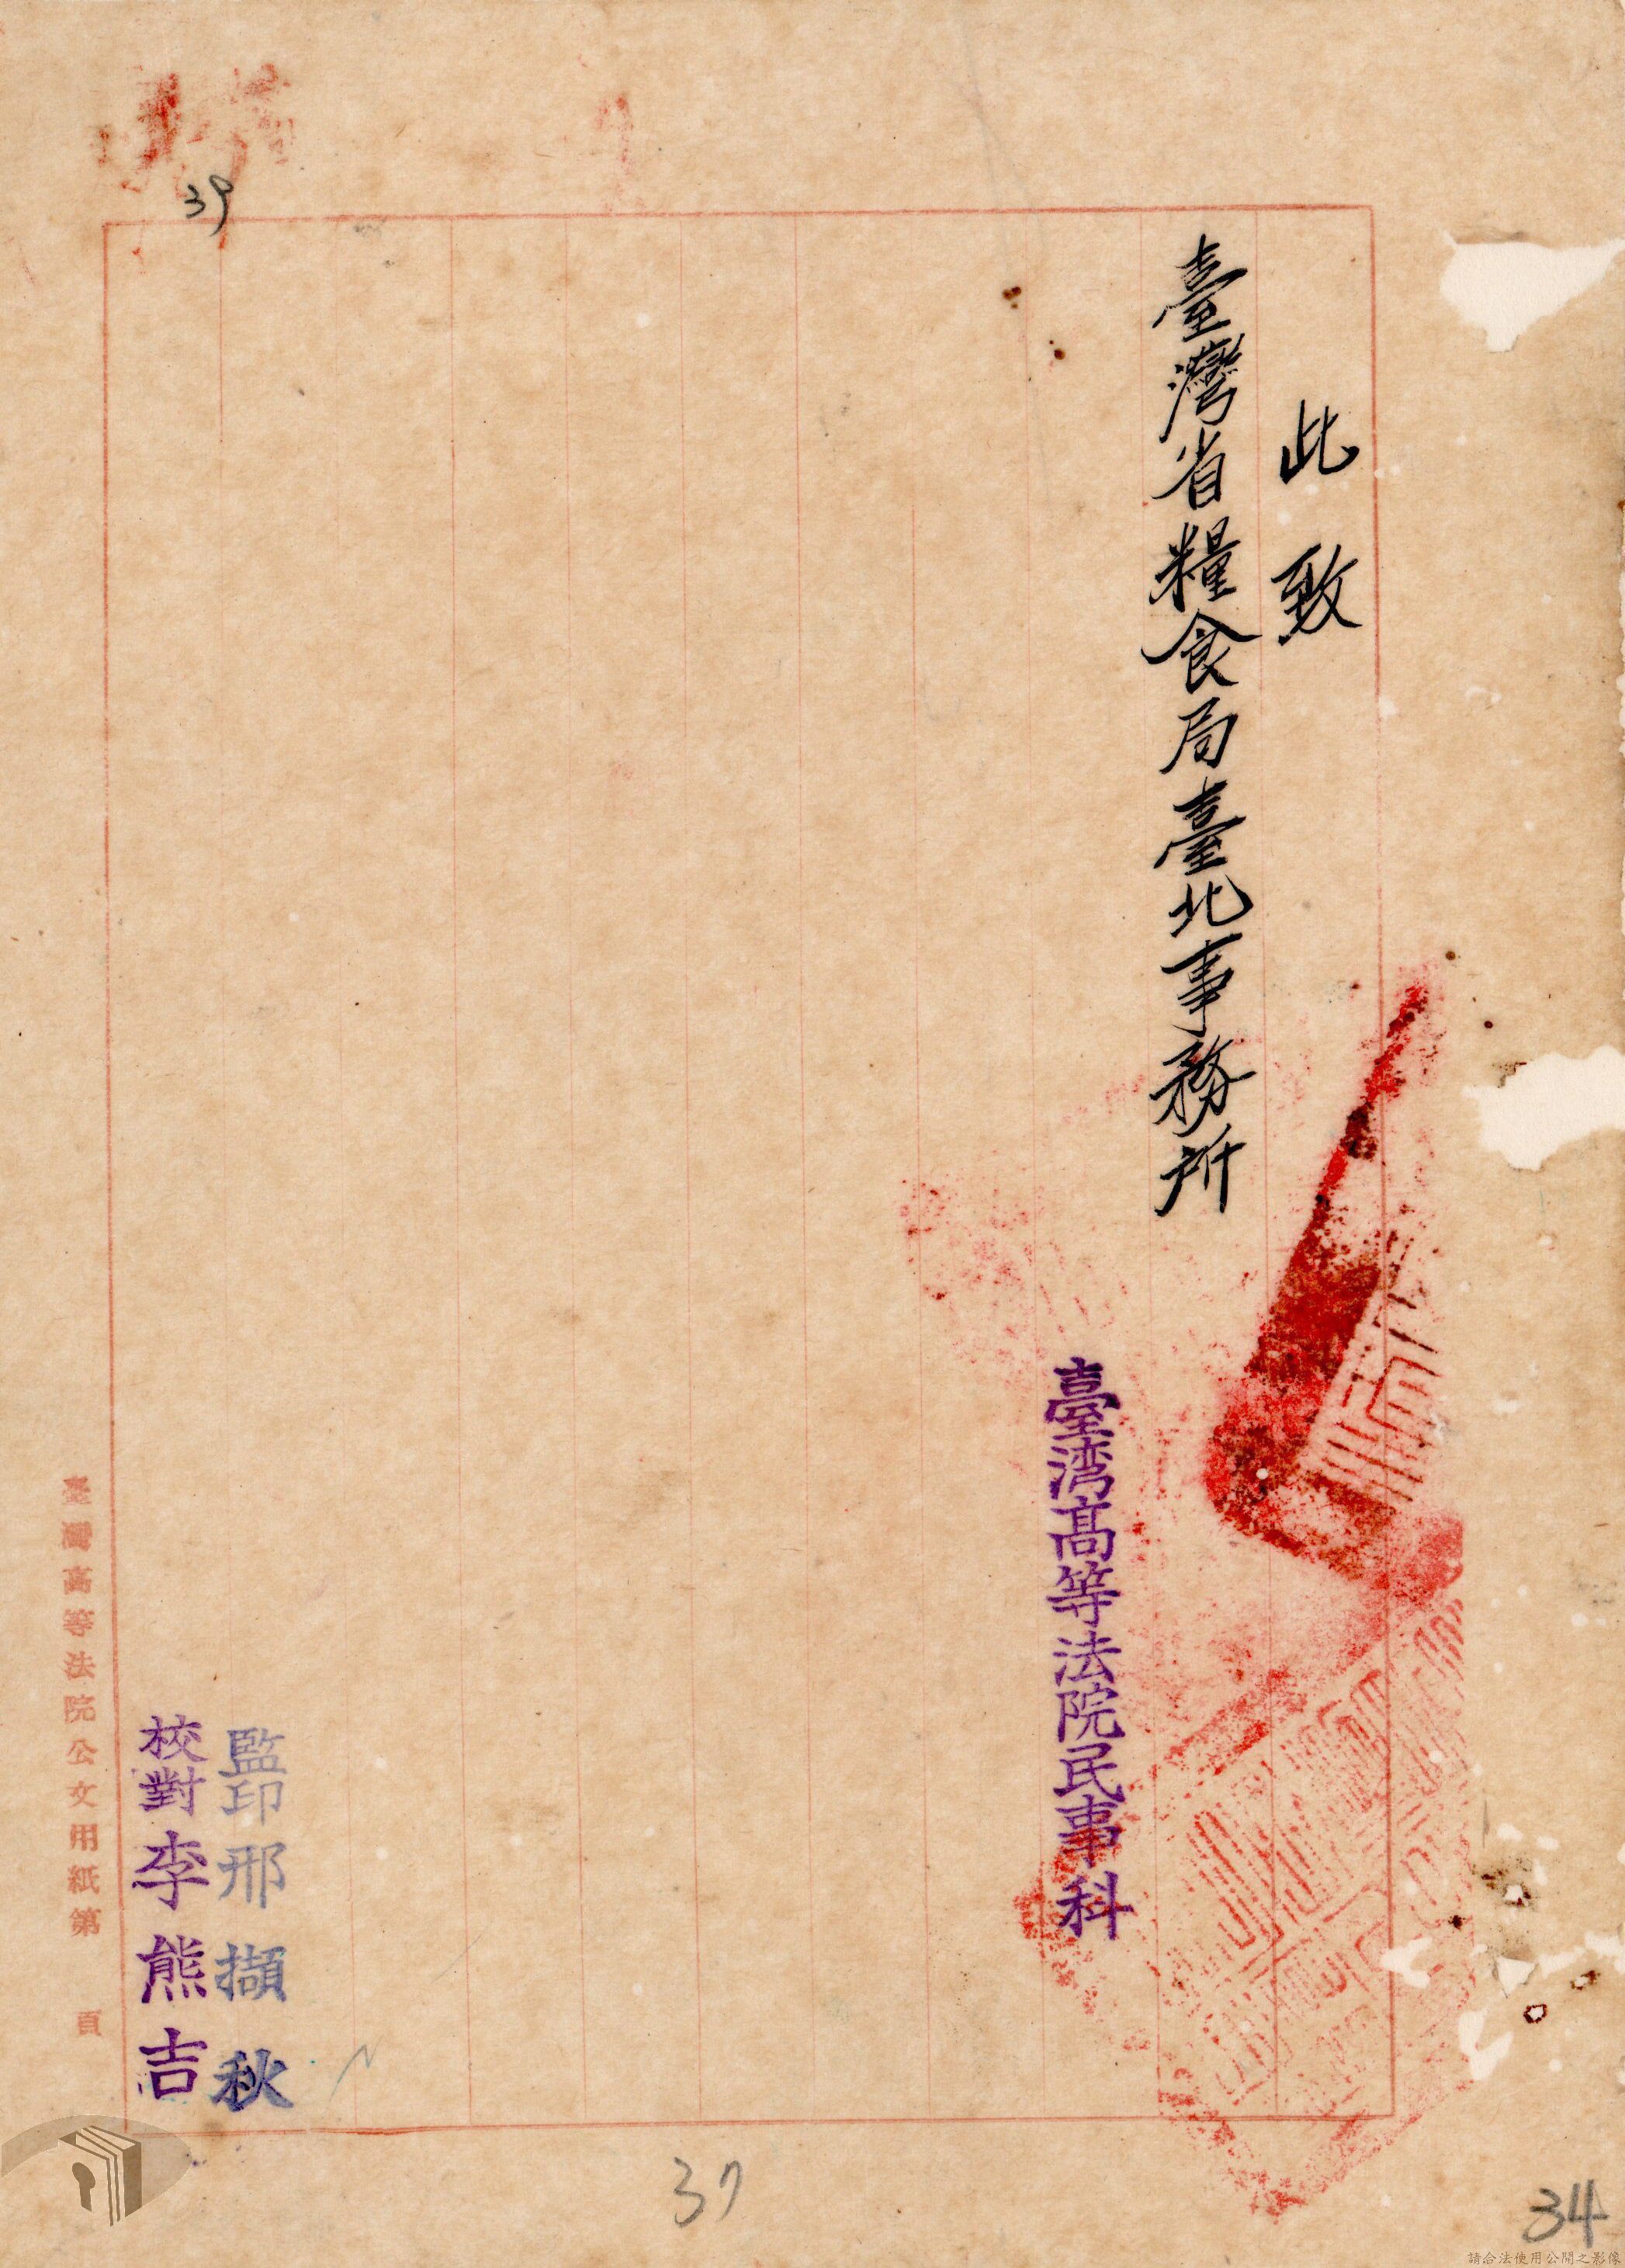 此致
臺灣省糧食局臺北事務所
臺湾高等法院民事科
監印邢擷秋
校對李熊吉
臺灣高等法院公文用紙第 頁
39
37
34
請合法使用公開之影像